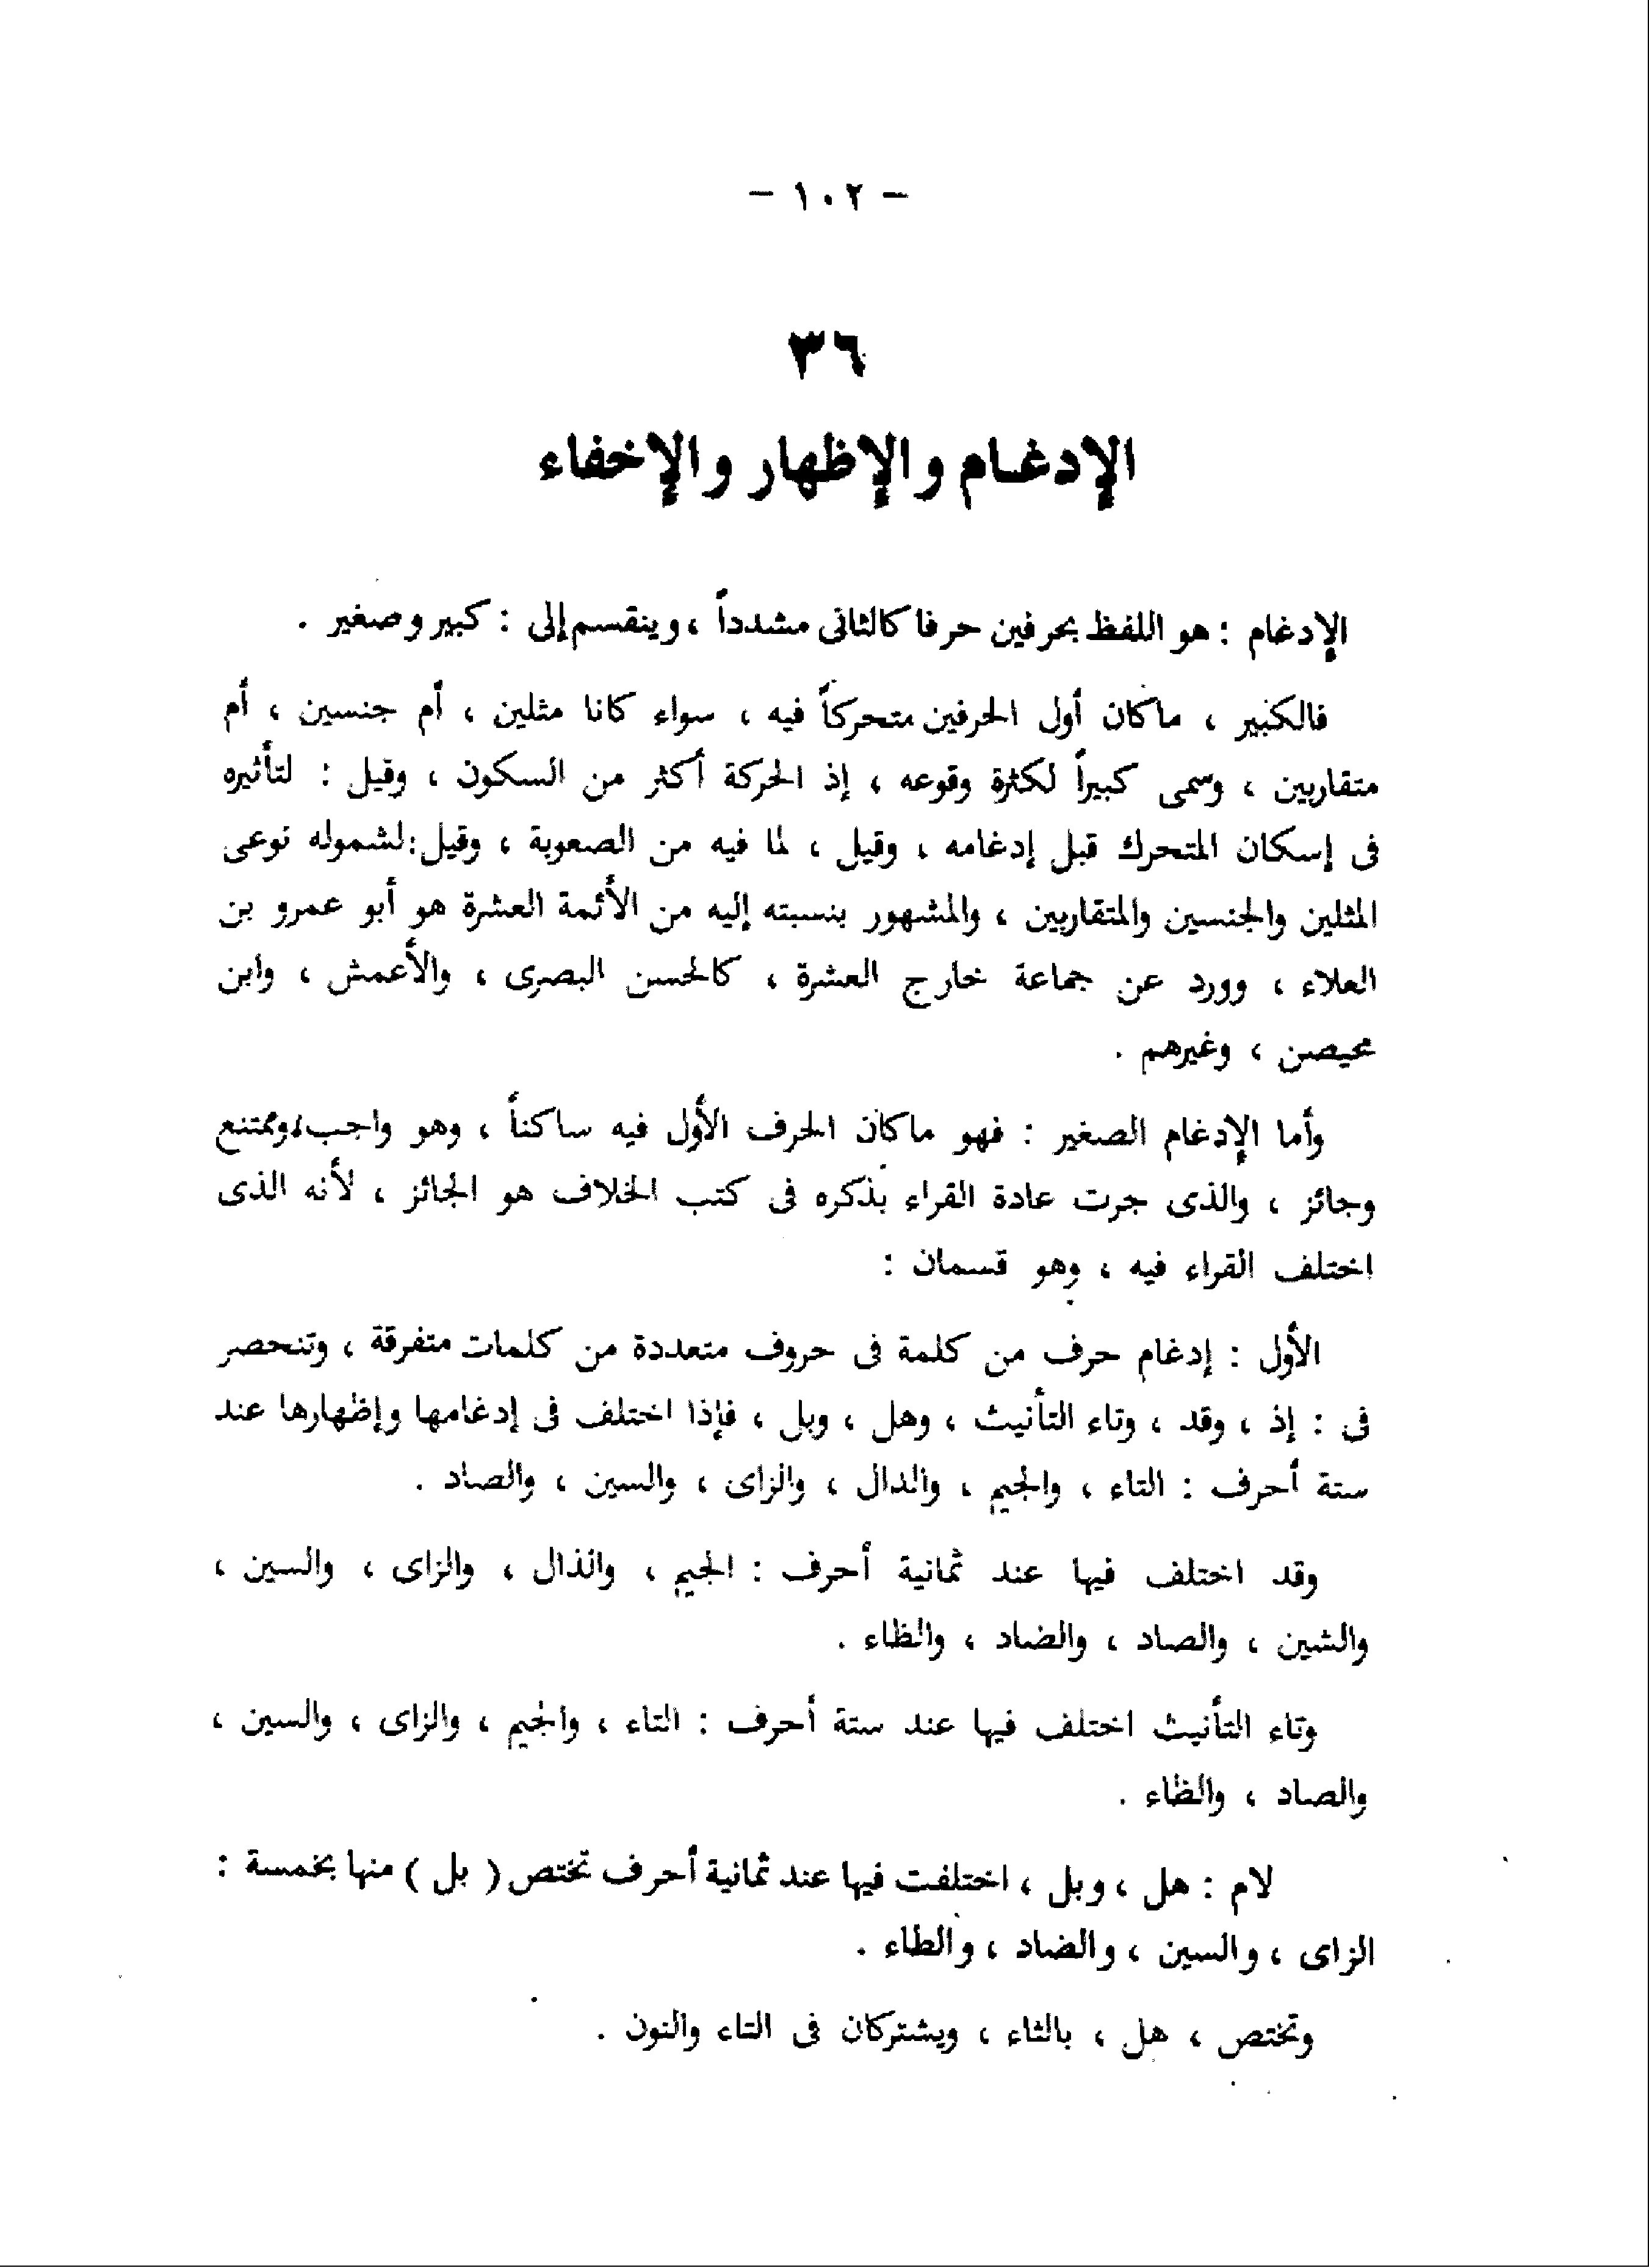 - ١٠٢ -
٣٦
الإدغام والإظهار والإخفاء
الإدغام : هو اللفظ بحرفين حرفا كالثانى مشدداً ، وينقسم إلى : كبير وصغير .
فالكبير ، ما كان أول الحرفين متحركاً فيه ، سواء كانا مثلين ، أم جنسين ، أم
متقاربين ، وسمى كبيراً لكثرة وقوعه ، إذ الحركة أكثر من السكون ، وقيل : لتأثيره
فى إسكان المتحرك قبل إدغامه ، وقيل ، لما فيه من الصعوبة ، وقيل : لشموله نوعى
المثلين والجنسين والمتقاربين ، والمشهور بنسبته إليه من الأئمة العشرة هو أبو عمرو بن
العلاء ، وورد عن جماعة خارج العشرة ، كالحسن البصرى ، والأعمش ، وابن
محيصن ، وغيرهم .
وأما الإدغام الصغير : فهو ما كان الحرف الأول فيه ساكناً ، وهو واجب، وممتنع
وجائز ، والذى جرت عادة القراء بذكره فى كتب الخلاف هو الجائز ، لأنه الذى
اختلف القراء فيه ، وهو قسمان :
الأول : إدغام حرف من كلمة فى حروف متعددة من كلمات متفرقة ، وتنحصر
فى : إذ ، وقد ، وتاء التأنيث ، وهل ، وبل ، فإذا اختلف فى إدغامها وإظهارها عند
ستة أحرف : التاء ، والجيم ، والدال ، والزاى ، والسين ، والصاد .
وقد اختلف فيها عند ثمانية أحرف : الجيم ، والذال ، والزاى ، والسين ،
والشين ، والصاد ، والضاد ، والظاء .
وتاء التأنيث اختلف فيها عند ستة أحرف : التاء ، والجيم ، والزاى ، والسين ،
والصاد ، والظاء .
لام : هل ، وبل ، اختلفت فيها عند ثمانية أحرف تختص ( بل ) منها بخمسة :
الزاى ، والسين ، والضاد ، والطاء .
وتختص ، هل ، بالثاء ، ويشتركان فى التاء والنون .